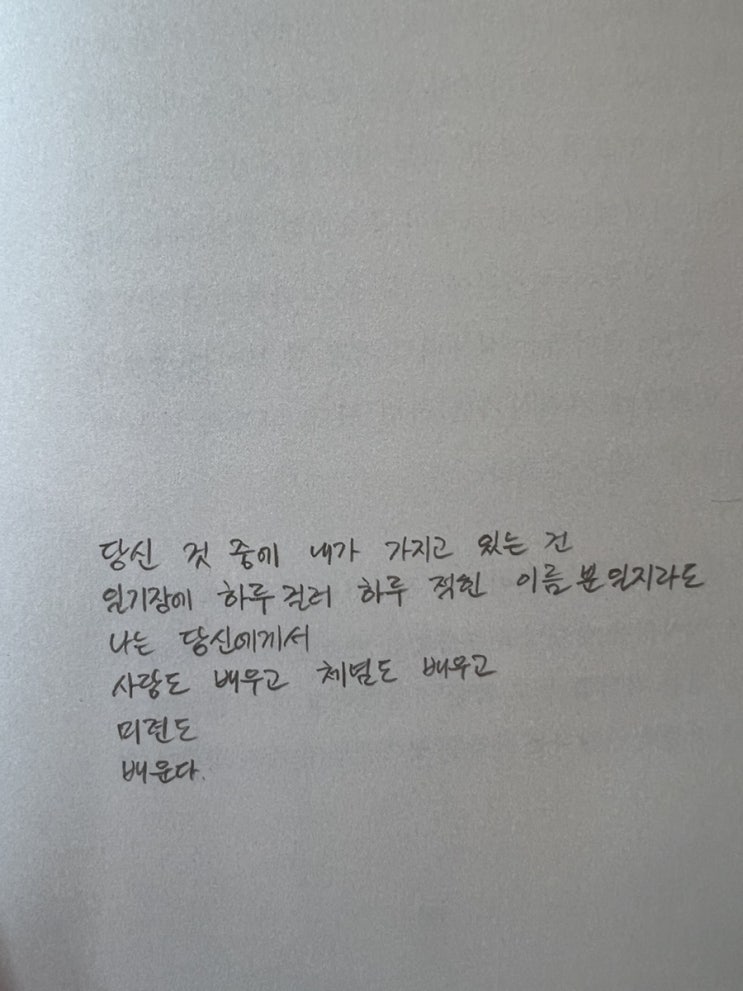 당신 것 중에 내가 가지고 있는 건
일기장에 하루 걸러 하루 적힌 이름 뿐일지라도
나는 당신에게서
사랑도 배우고 체념도 배우고
미련도
배운다.